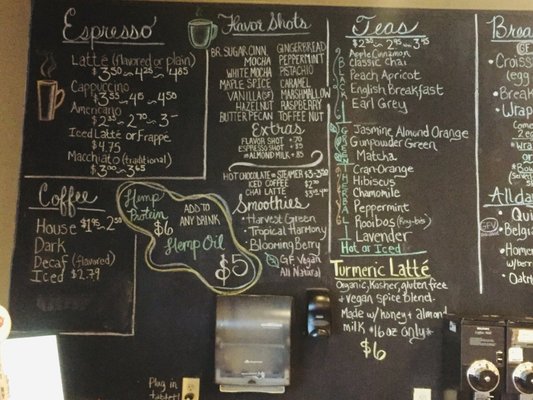 Espresso
Latté (flavored or plain)
$3.50 ~ 4.25 ~ 4.85
Cappuccino
$3.55 ~ 4.15 ~ 4.50
Americano
$2.35 ~ 2.70 ~ 3-
Iced Latté or Frappe
$4.75
Macchiato (traditional)
$3.00 ~ 3.65
Coffee
House $1.95 ~ 2.50
Dark
Decaf (flavored)
Iced $2.79
Hemp
Protein
$6
ADD TO
ANY DRINK
Hemp Oil
$5
Flavor Shots
BR. SUGAR CINN. GINGERBREAD
MOCHA PEPPERMINT
WHITE MOCHA PISTACHIO
MAPLE SPICE CARAMEL
VANILLA (SF) MARSHMALLOW
HAZELNUT RASPBERRY
BUTTER PECAN TOFFEE NUT
Extras
FLAVOR SHOT .70
ESPRESSO SHOT
ALMOND MILK
HOT CHOCOLATE or STEAMER
ICED COFFEE
CHAI LATTE
Smoothies
Harvest Green
Tropical Harmony
Blooming Berry
GF Vegan
All Natural
Teas
$2.35 ~ 2.75 ~ 3.45
Apple Cinnamon
BLACK
Classic Chai
Peach Apricot
English Breakfast
Earl Grey
GREEN
Jasmine Almond Orange
Gunpowder Green
Matcha
HERBAL
Cran-Orange
Hibiscus
Chamomile
Peppermint
Rooibos (Roy-bis)
Lavender
Hot or Iced
Turmeric Latté
Organic, Kosher, gluten free
+ vegan spice blend.
Made w/ honey + almond
milk *16 oz only*
$6
Croiss
(egg
Break
Wrap
Allda
GFV
Qui
Belgi
Home
w/ber
Oatm
Plug in
tablet!